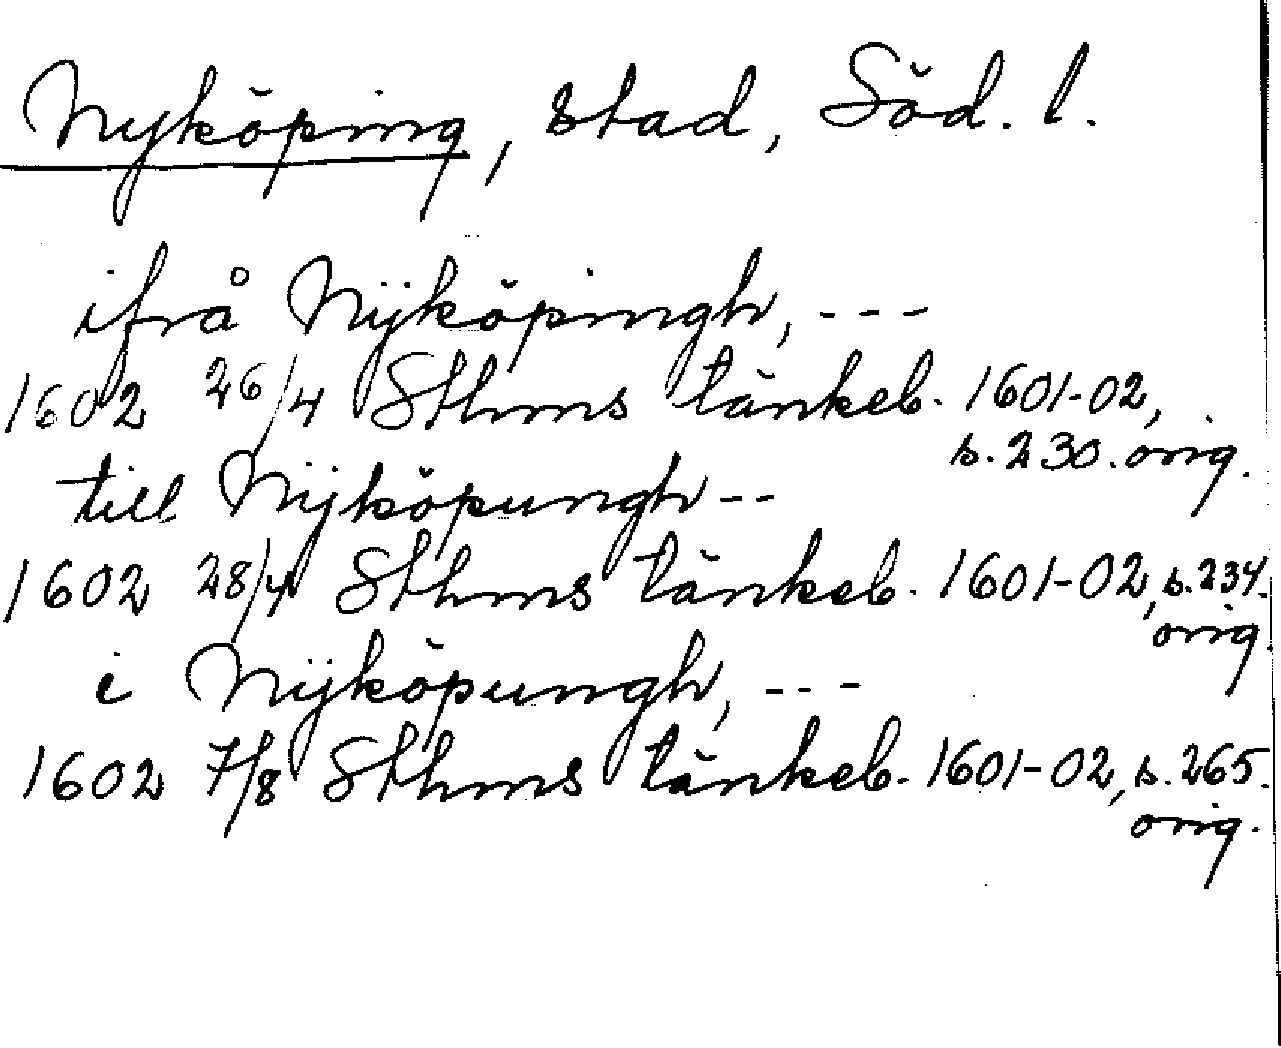 Nyköping, stad, Söd. l.
ifrå Nÿköpingh, ---
1602 26/4 Sthms tänkeb. 1601-02,
s. 230. orig.
till Nÿköpungh--
1602 28/4 Sthms tänkeb. 1601-02, s. 234.
orig.
i Nÿköpungh, ---
1602 7/8 Sthms tänkeb. 1601-02, s. 265.
orig.